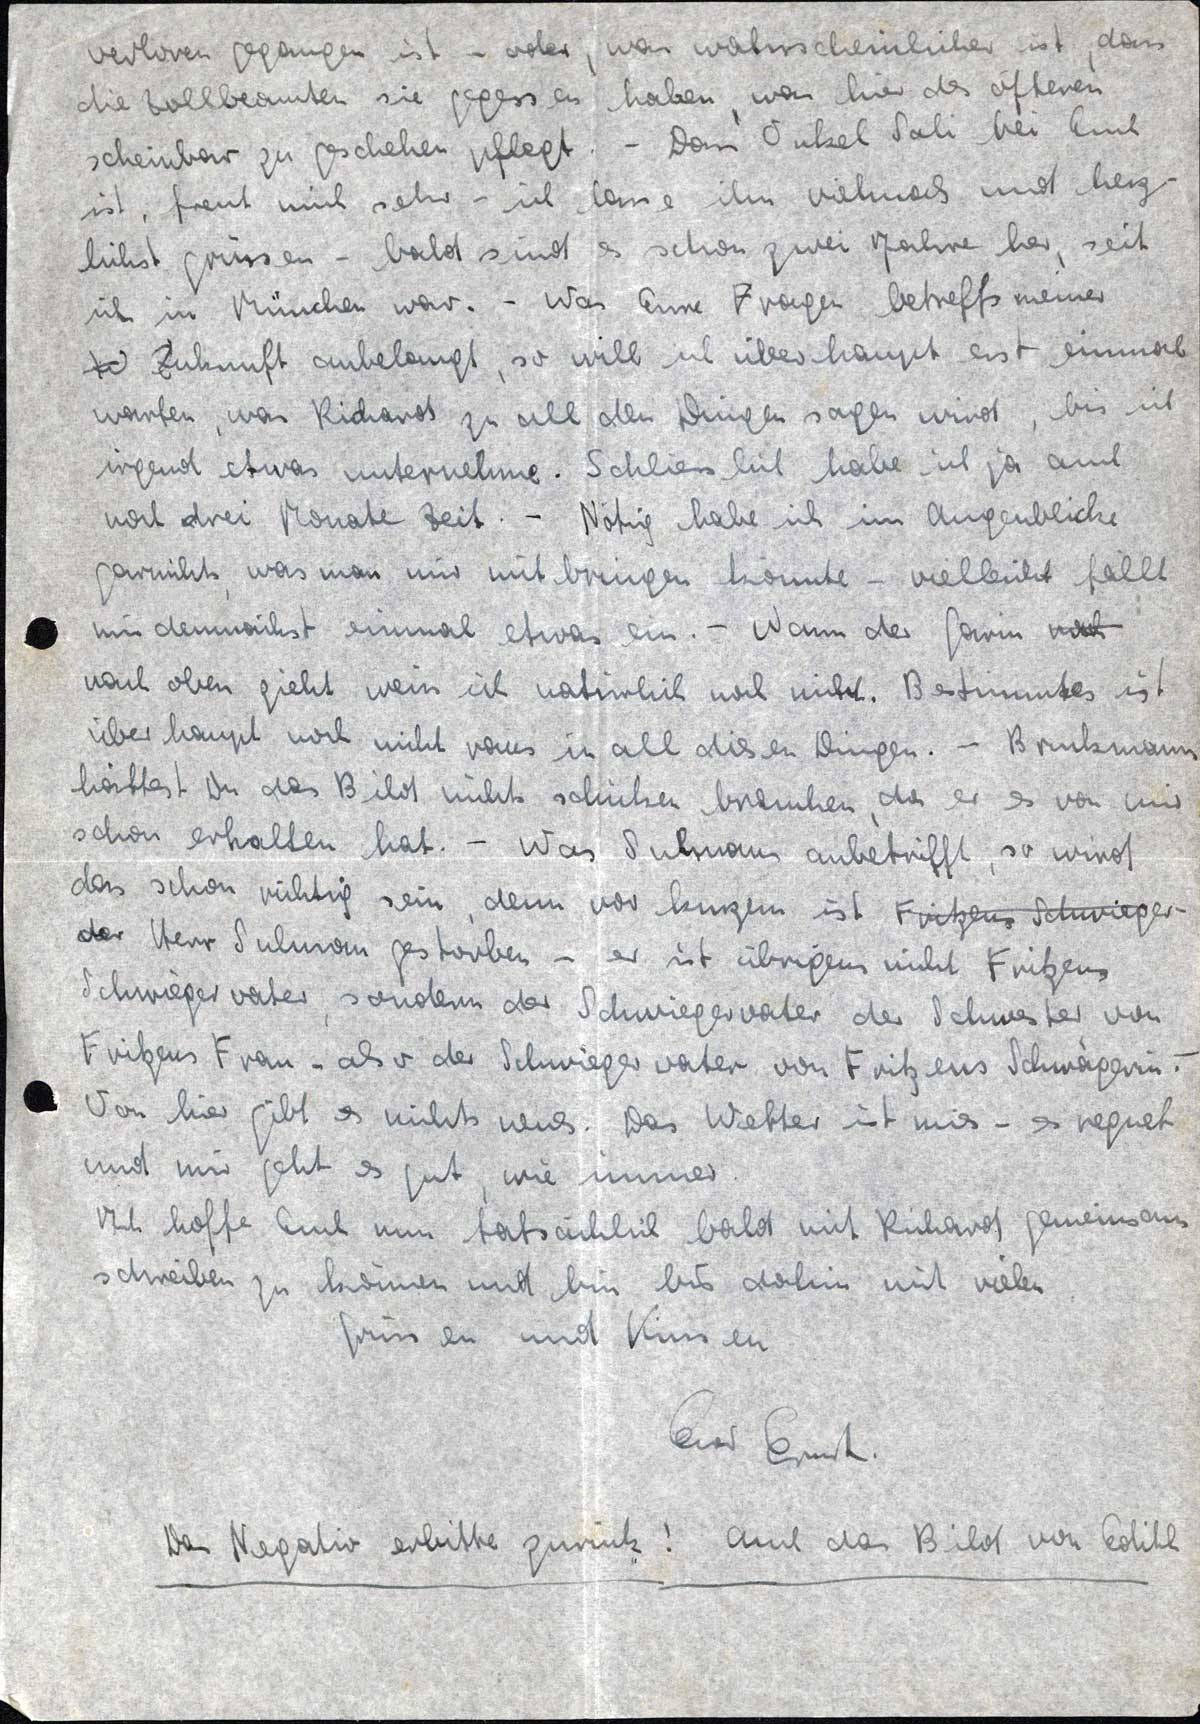 verloren gegangen ist – oder, was wahrscheinlicher ist, dass
die Zollbeamten sie gegessen haben, was hier des öfteren
scheinbar zu geschehen pflegt. – Dass Onkel Sali bei Euch
ist, freut mich sehr – ich lasse ihn vielmals und herz-
lichst grüssen – bald sind es schon zwei Jahre her, seit
ich in München war. – Was Eure Fragen betreffs meiner
Zukunft anbelangt, so will ich überhaupt erst einmal
warten, was Richard zu all den Dingen sagen wird, bis ich
irgend etwas unternehme. Schliesslich habe ich ja auch
noch drei Monate Zeit. – Nötig habe ich im Augenblicke
garnichts, was man mir mitbringen könnte – vielleicht fällt
mir demnächst einmal etwas ein. – Wann der noch
nach oben zieht weiss ich natürlich noch nicht. Bestimmtes ist
überhaupt noch nicht raus in all diesen Dingen. – Bruckmann
hättest Du das Bild nicht schicken brauchen, da er es von mir
schon erhalten hat. – Was Sulmans anbetrifft, so wird
das schon richtig sein, denn vor kurzem ist Fritzens Schwieger-
der Herr Sulman gestorben – er ist übrigens nicht Fritzens
Schwiegervater, sondern der Schwiegervater der Schwester von
Fritzens Frau – also der Schwiegervater von Fritzens Schwägerin. –
Von hier gibt es nichts neues. Das Wetter ist mies – es regnet
und mir geht es gut, wie immer.
Ich hoffe Euch nun tatsächlich bald mit Richard gemeinsam
schreiben zu können und bin bis dahin mit vielen
Grüssen und Küssen
Euer Ernst.
Das Negativ erbitte zurück! Auch das Bild von Edith